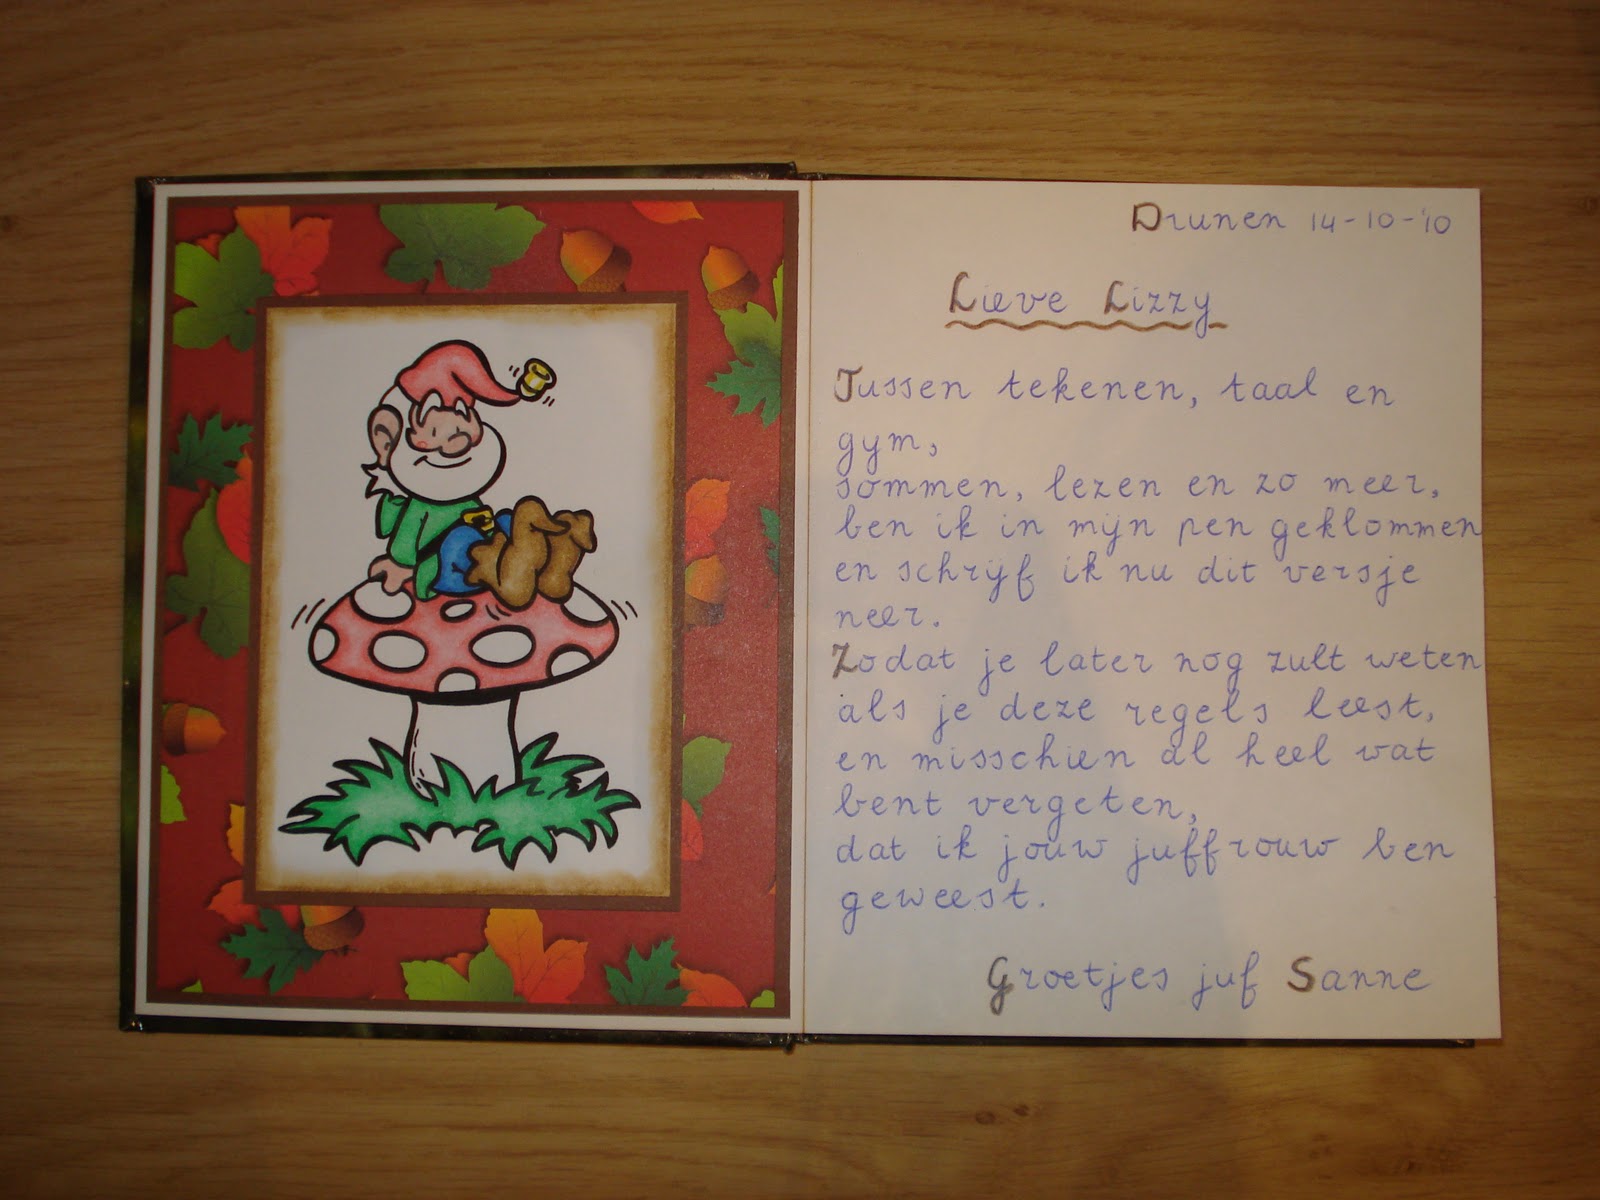 Drunen 14-10-'10
Lieve Lizzy
Tussen tekenen, taal en
gym,
sommen, lezen en zo meer,
ben ik in mijn pen geklommen
en schrijf ik nu dit versje
neer.
Zodat je later nog zult weten
als je deze regels leest,
en misschien al heel wat
bent vergeten,
dat ik jouw juffrouw ben
geweest.
Groetjes juf Sanne